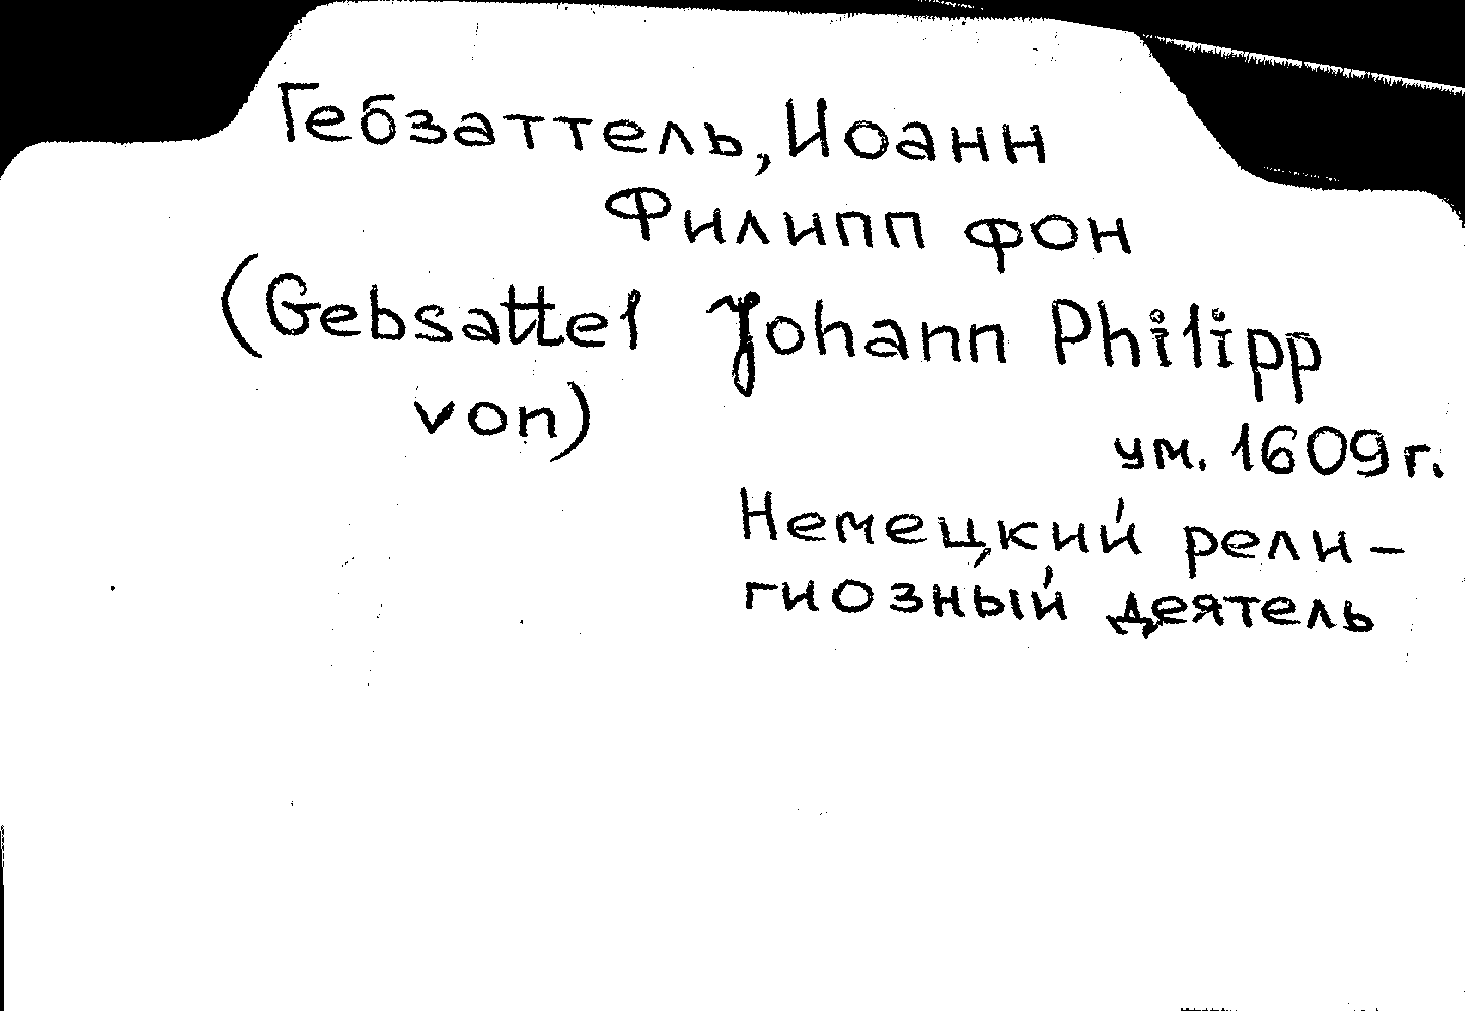 Гебзаттель, Иоанн
Филипп фон
(Gebsattel Johann Philipp
von)
ум. 1609 г.
Немецкий рели-
гиозный деятель